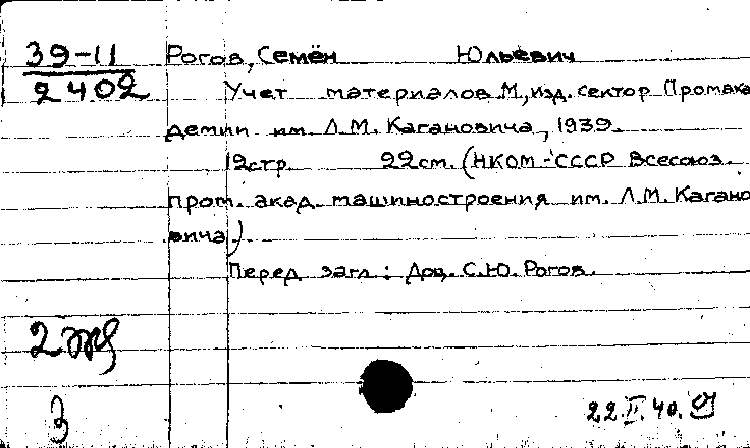 39-11
2402
Рогов, Семён Юльевич
Учет материалов М., изд. сектор Промака
демии им. Л.М. Кагановича, 1939.
12стр. 22см. (НКОМ-СССР Всесоюз.
пром. акад. машиностроения им. Л.М. Кагано
вича).
Перед загл: Доц. С.Ю. Рогов.
2
3
22.II.40.